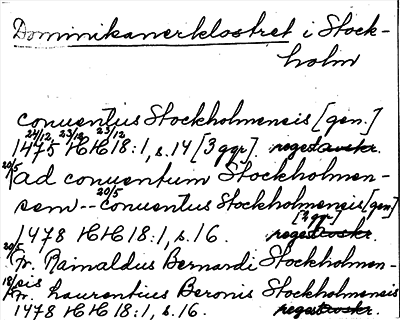 Dominikanerklostret i Stock-
holm
conventus Stockholmensis [gen.]
24/12 23/12 23/12
1475 HH 18:1, s. 14 [3 ggr]. regestavskr.
20/5
ad conventum Stockholmen-
20/5
sem -- conventus Stockholmensis [gen]
[2 ggr]
1478 HH 18:1, s. 16. regestavskr.
20/5
Fr. Rainaldus Bernardi Stockholmen-
sis
Fr. Laurentius Beronis Stockholmensis
1478 HH 18:1, s. 16. regestavskr.